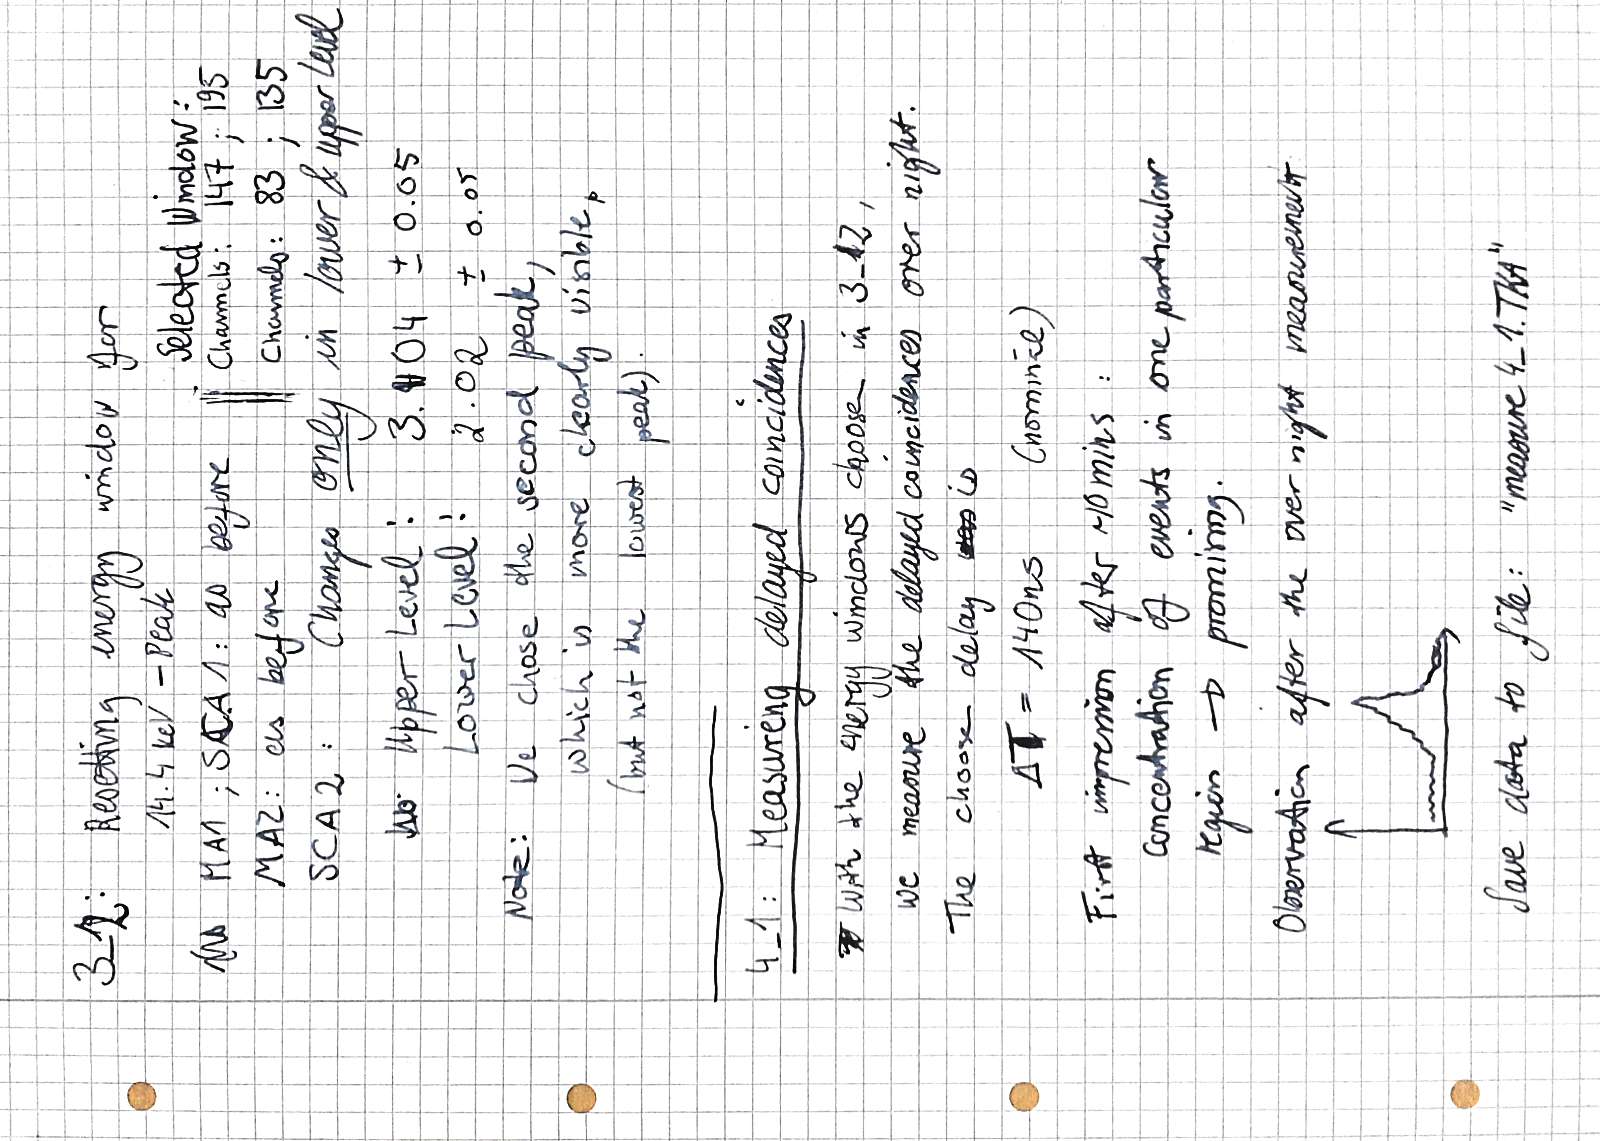 3_12: Resetting energy window for
14.4 keV - Peak
Selected Window:
MA1 ; SCA1: as before Channels: 147 ; 195
MA2: as before Channels: 83 ; 135
SCA2: Changes only in lower & upper Level
Upper Level: 3.04 ± 0.05
Lower Level: 2.02 ± 0.05
Note: We chose the second peak,
which is more clearly visible,
(but not the lowest peak).
4_1: Measureing delayed coincidences
With the energy windows choosen in 3_12,
we measure the delayed coincidences over night.
The choosen delay is
ΔT = 140ns (nominal)
First impression after ~10mins:
Concentration of events in one particular
region → promising.
Observation after the over night measurement
Save data to file: "measure 4_1.TKA"